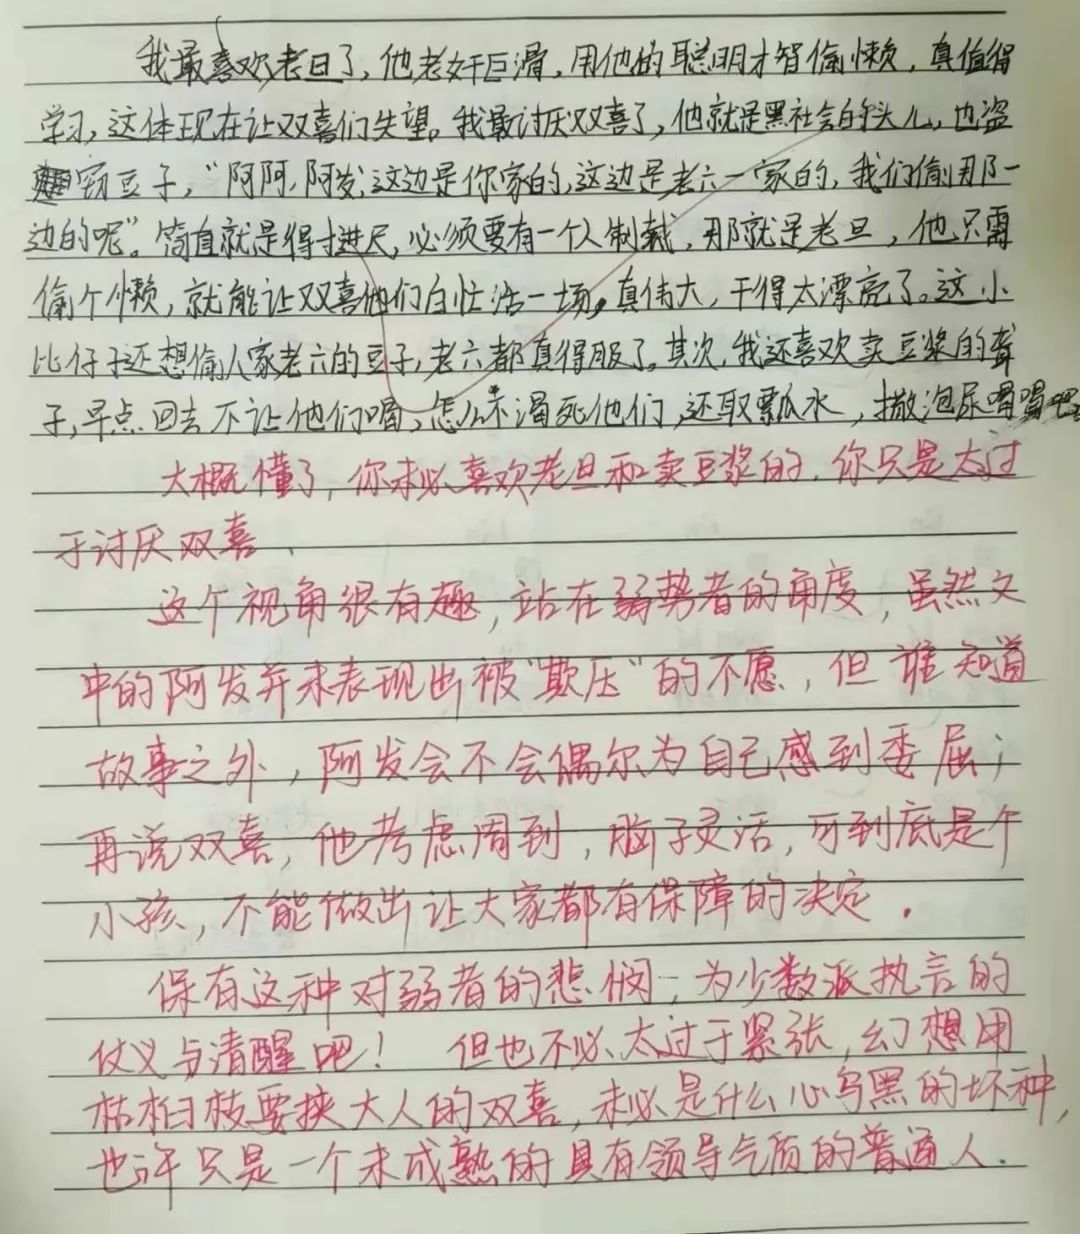 我最喜欢老旦了，他老奸巨滑，用他的聪明才智偷懒，真值得
学习，这体现在让双喜们失望。我最讨厌双喜了，他就是黑社会的头儿，也盗
窃豆子，“阿阿，阿发，这边是你家的，这边是老六一家的，我们偷那一
边的呢”。简直就是得寸进尺，必须要有一个人制裁，那就是老旦，他只需
偷个懒，就能让双喜他们白忙活一场。真伟大，干得太漂亮了。这小
比仔子还想偷人家老六的豆子，老六都真得服了。其次，我还喜欢卖豆浆的聋
子，早点回去不让他们喝，怎么不渴死他们，还取瓢水，撒泡尿喝喝吧
大概懂了，你未必喜欢老旦和卖豆浆的，你只是太过
于讨厌双喜、
这个视角很有趣，站在弱势者的角度，虽然文
中的阿发并未表现出被“欺压”的不愿，但谁知道
故事之外，阿发会不会偶尔为自己感到委屈；
再说双喜，他考虑周到，脑子灵活，可到底是个
小孩，不能做出让大家都有保障的决定．
保有这种对弱者的悲悯，为少数派执言的
仗义与清醒吧！ 但也不必太过于紧张，幻想用
桕枝要挟大人的双喜，未必是什么心乌黑的坏种，
也许只是一个未成熟的具有领导气质的普通人．